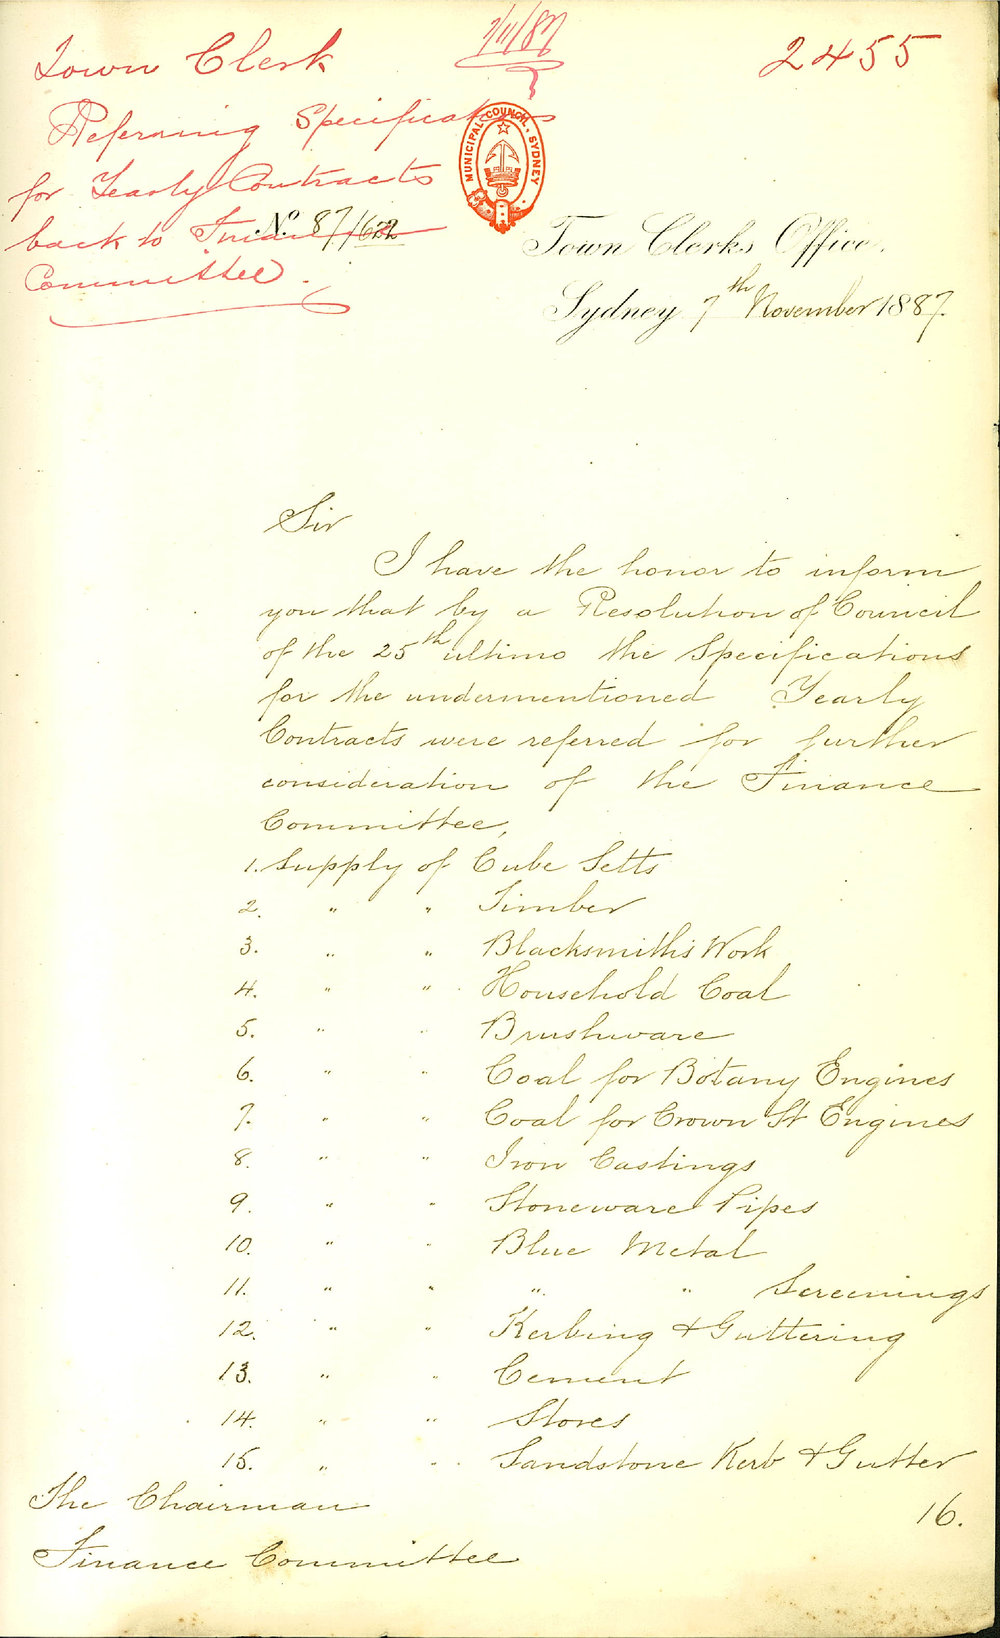 7/11/87
2455
Town Clerk
Referring Specifications
for Yearly Contracts
back to Finance
Committee.
MUNICIPAL COUNCIL, SYDNEY
No. 87/622
Town Clerks Office,
Sydney 7th November 1887.
Sir
I have the honor to inform
you that by a Resolution of Council
of the 25th ultimo the Specifications
for the undermentioned Yearly
Contracts were referred for further
consideration of the Finance
Committee,
1. Supply of Cube Setts
2. " " Timber
3. " " Blacksmith's Work
4. " " Household Coal
5. " " Brushware
6. " " Coal for Botany Engines
7. " " Coal for Crown St Engines
8. " " Iron Castings
9. " " Stoneware Pipes
10. " " Blue Metal
11. " " " " Screenings
12. " " Kerbing & Guttering
13. " " Cement
14. " " Stores
15. " " Sandstone Kerb & Gutter
The Chairman
Finance Committee
16.